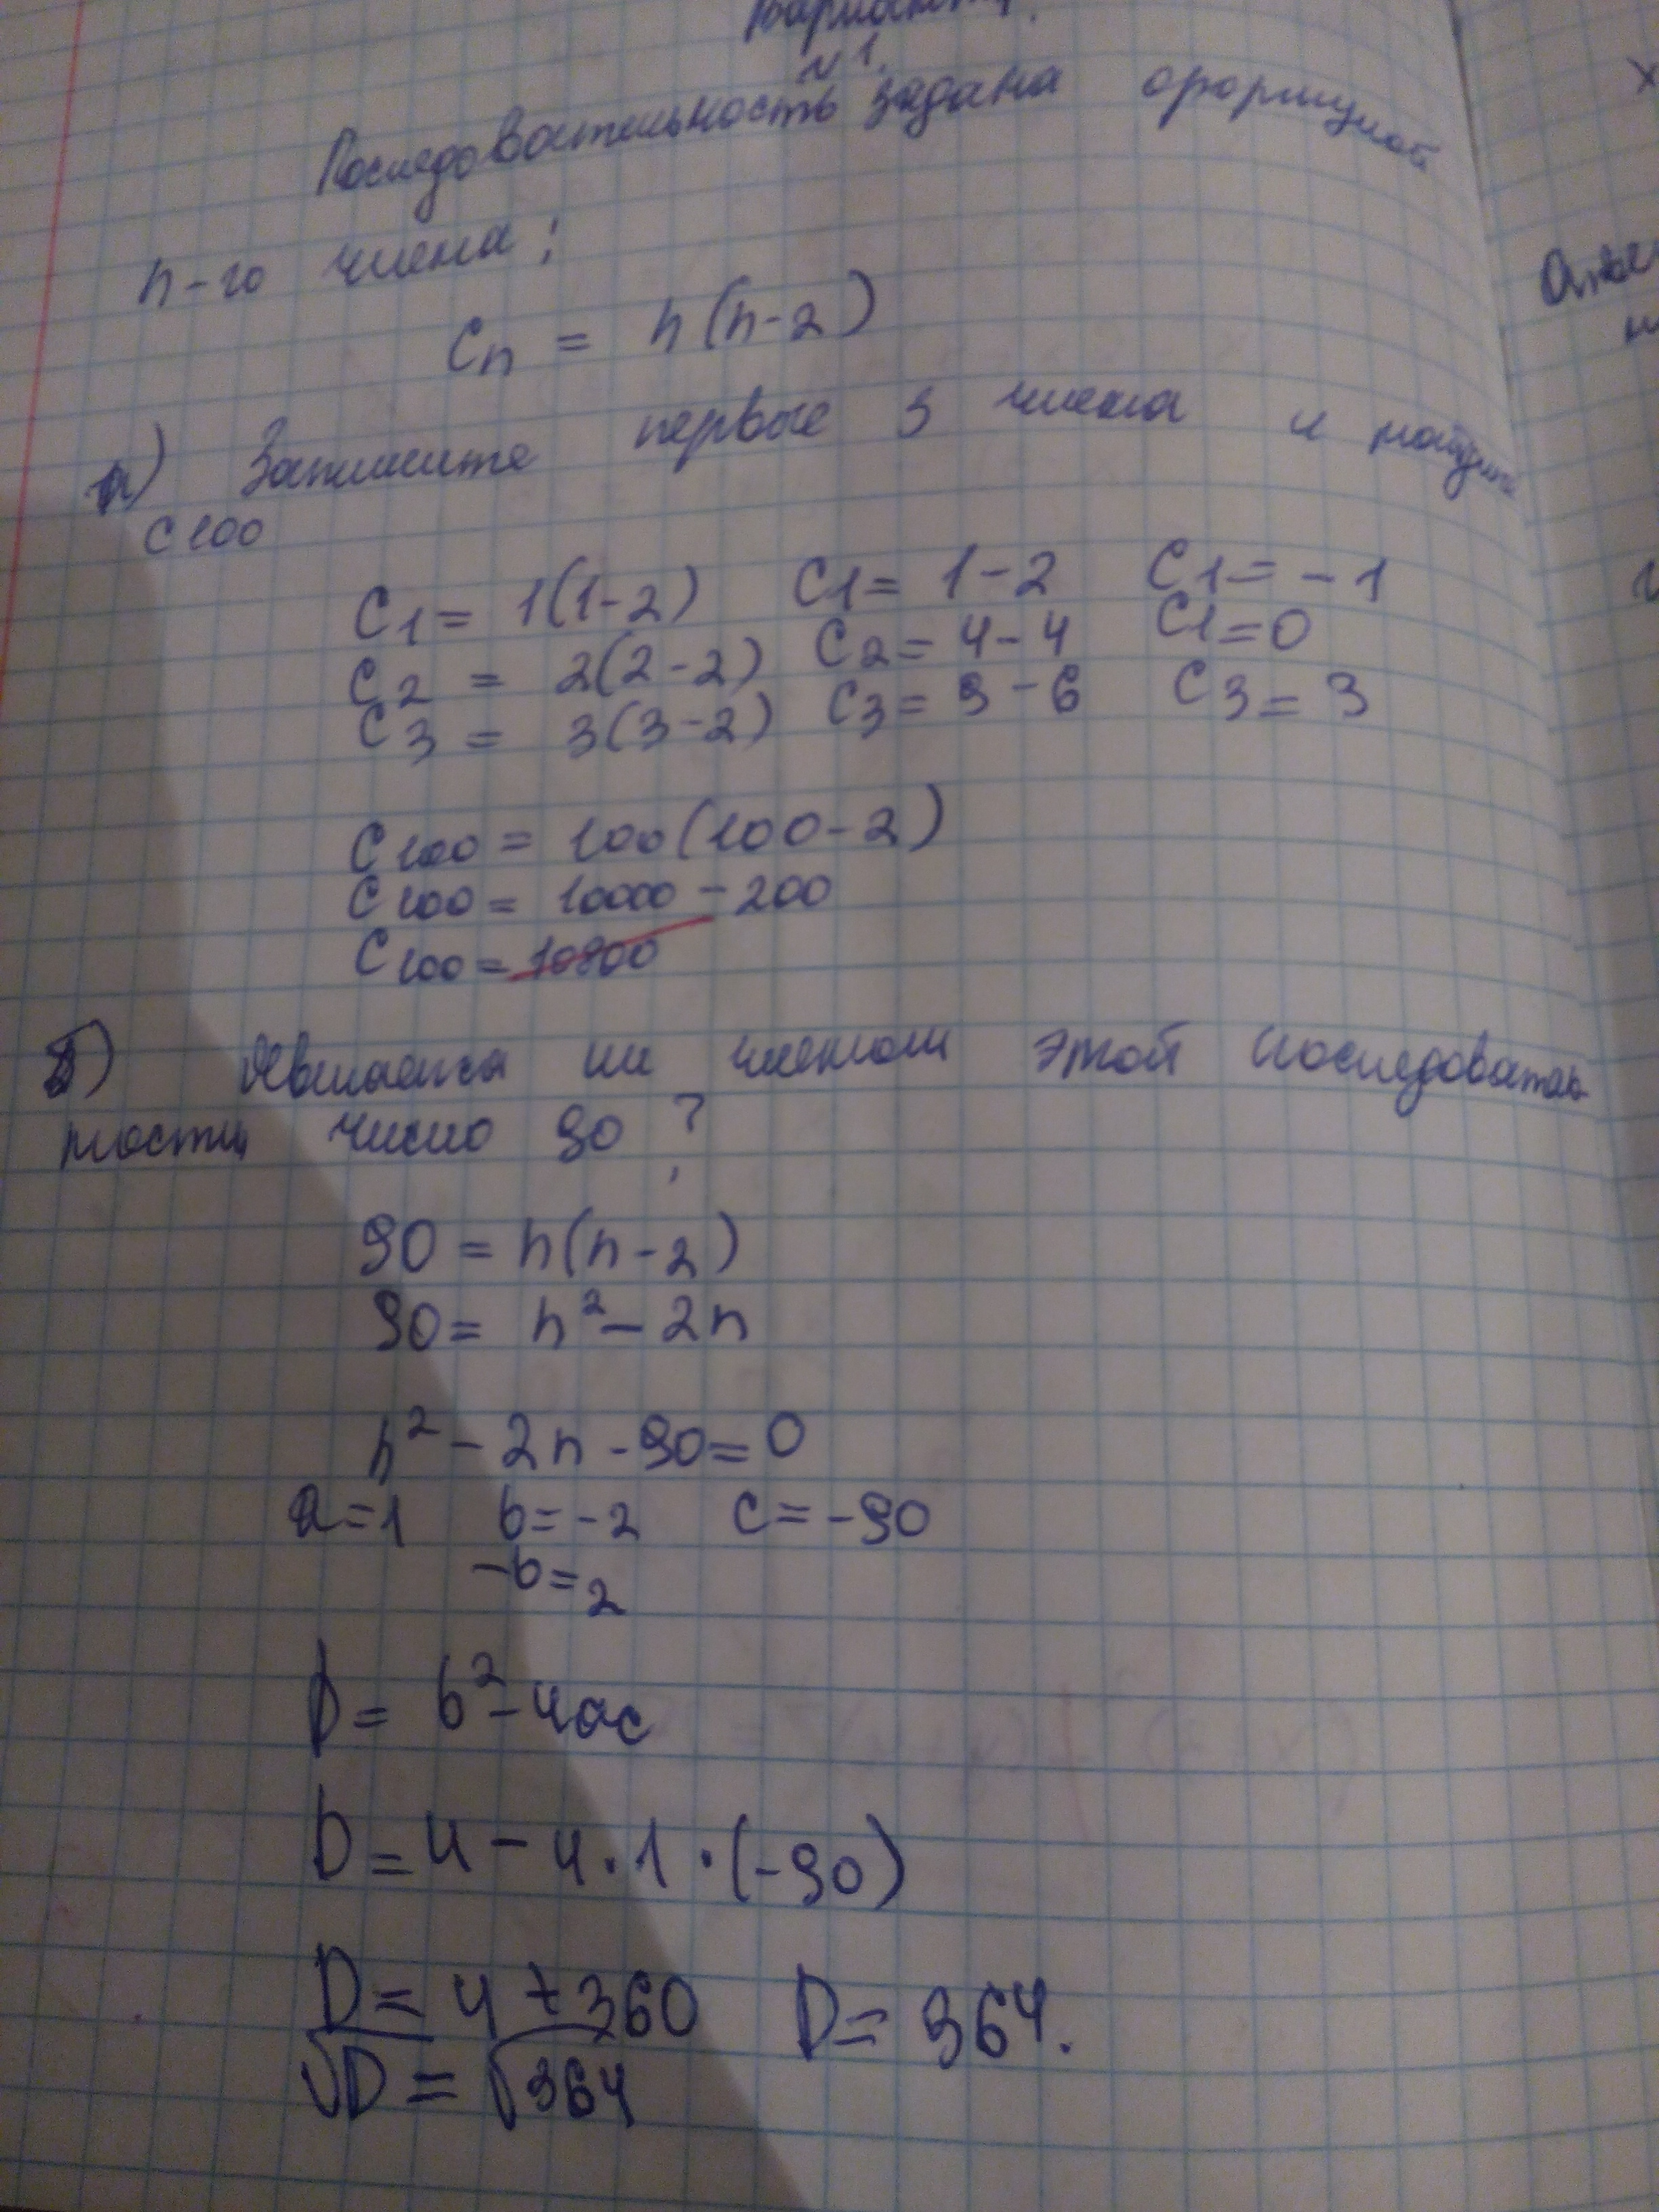 Вариант 1.
№1.
Последовательность задана формулой
n-го члена:
Cn = n(n-2)
а) Запишите первые 3 члена и найдите
C100
C1 = 1(1-2) C1 = 1-2 C1 = -1
C2 = 2(2-2) C2 = 4-4 C1 = 0
C3 = 3(3-2) C3 = 9-6 C3 = 3
C100 = 100(100-2)
C100 = 10000 - 200
C100 = 10800
б) Является ли членом этой последователь
ности число 90?
90 = n(n-2)
90 = n² - 2n
n² - 2n - 90 = 0
a = 1 b = -2 c = -90
-b = 2
D = b² - 4ac
D = 4 - 4·1·(-90)
D = 4 + 360 D = 364.
√D = √364